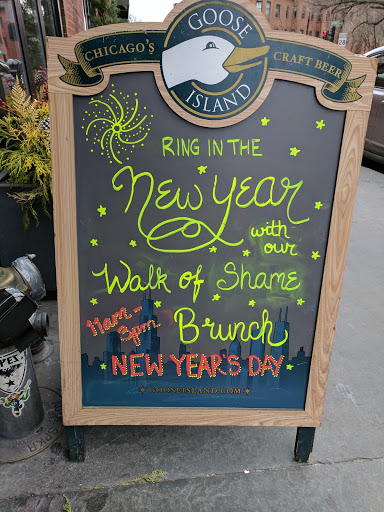 GOOSE
CHICAGO'S CRAFT BEER
ISLAND
RING IN THE
New Year
with
our
Walk of Shame
11am-
3pm
Brunch
NEW YEAR'S DAY
GOOSEISLAND.COM